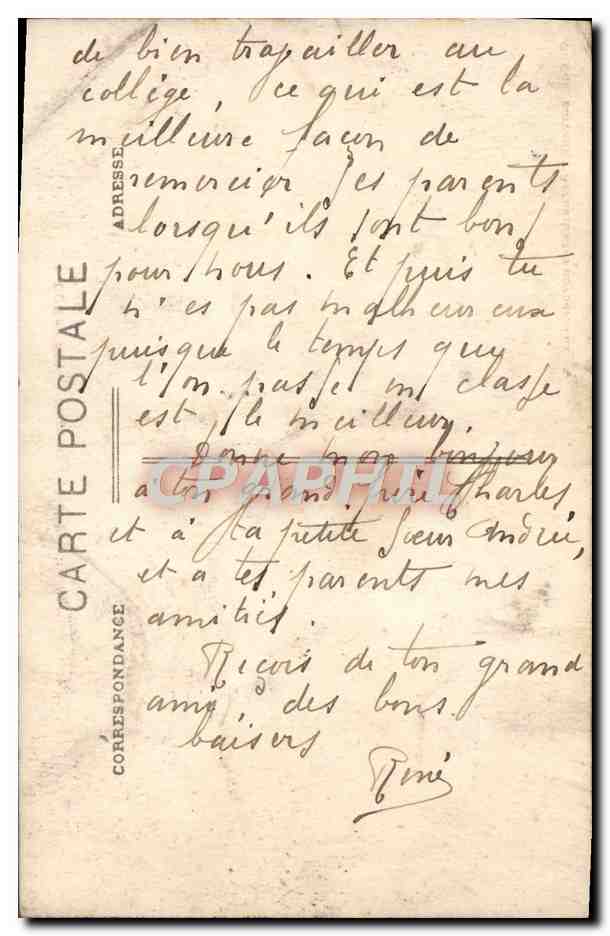 de bien travailler au
collège, ce qui est la
meilleure façon de
remercier ses parents
lorsqu'ils sont bons
pour nous. Et puis tu
n'es pas malheureux
puisque le temps que
l'on passe en classe
est le meilleur.
Donne mon bonjour
à ton grand frère Charles,
et à ta petite sœur Andrée,
et à tes parents mes
amitiés.
Reçois de ton grand
ami, des bons
baisers
René
CARTE POSTALE
ADRESSE
CORRESPONDANCE
CPAPHIL